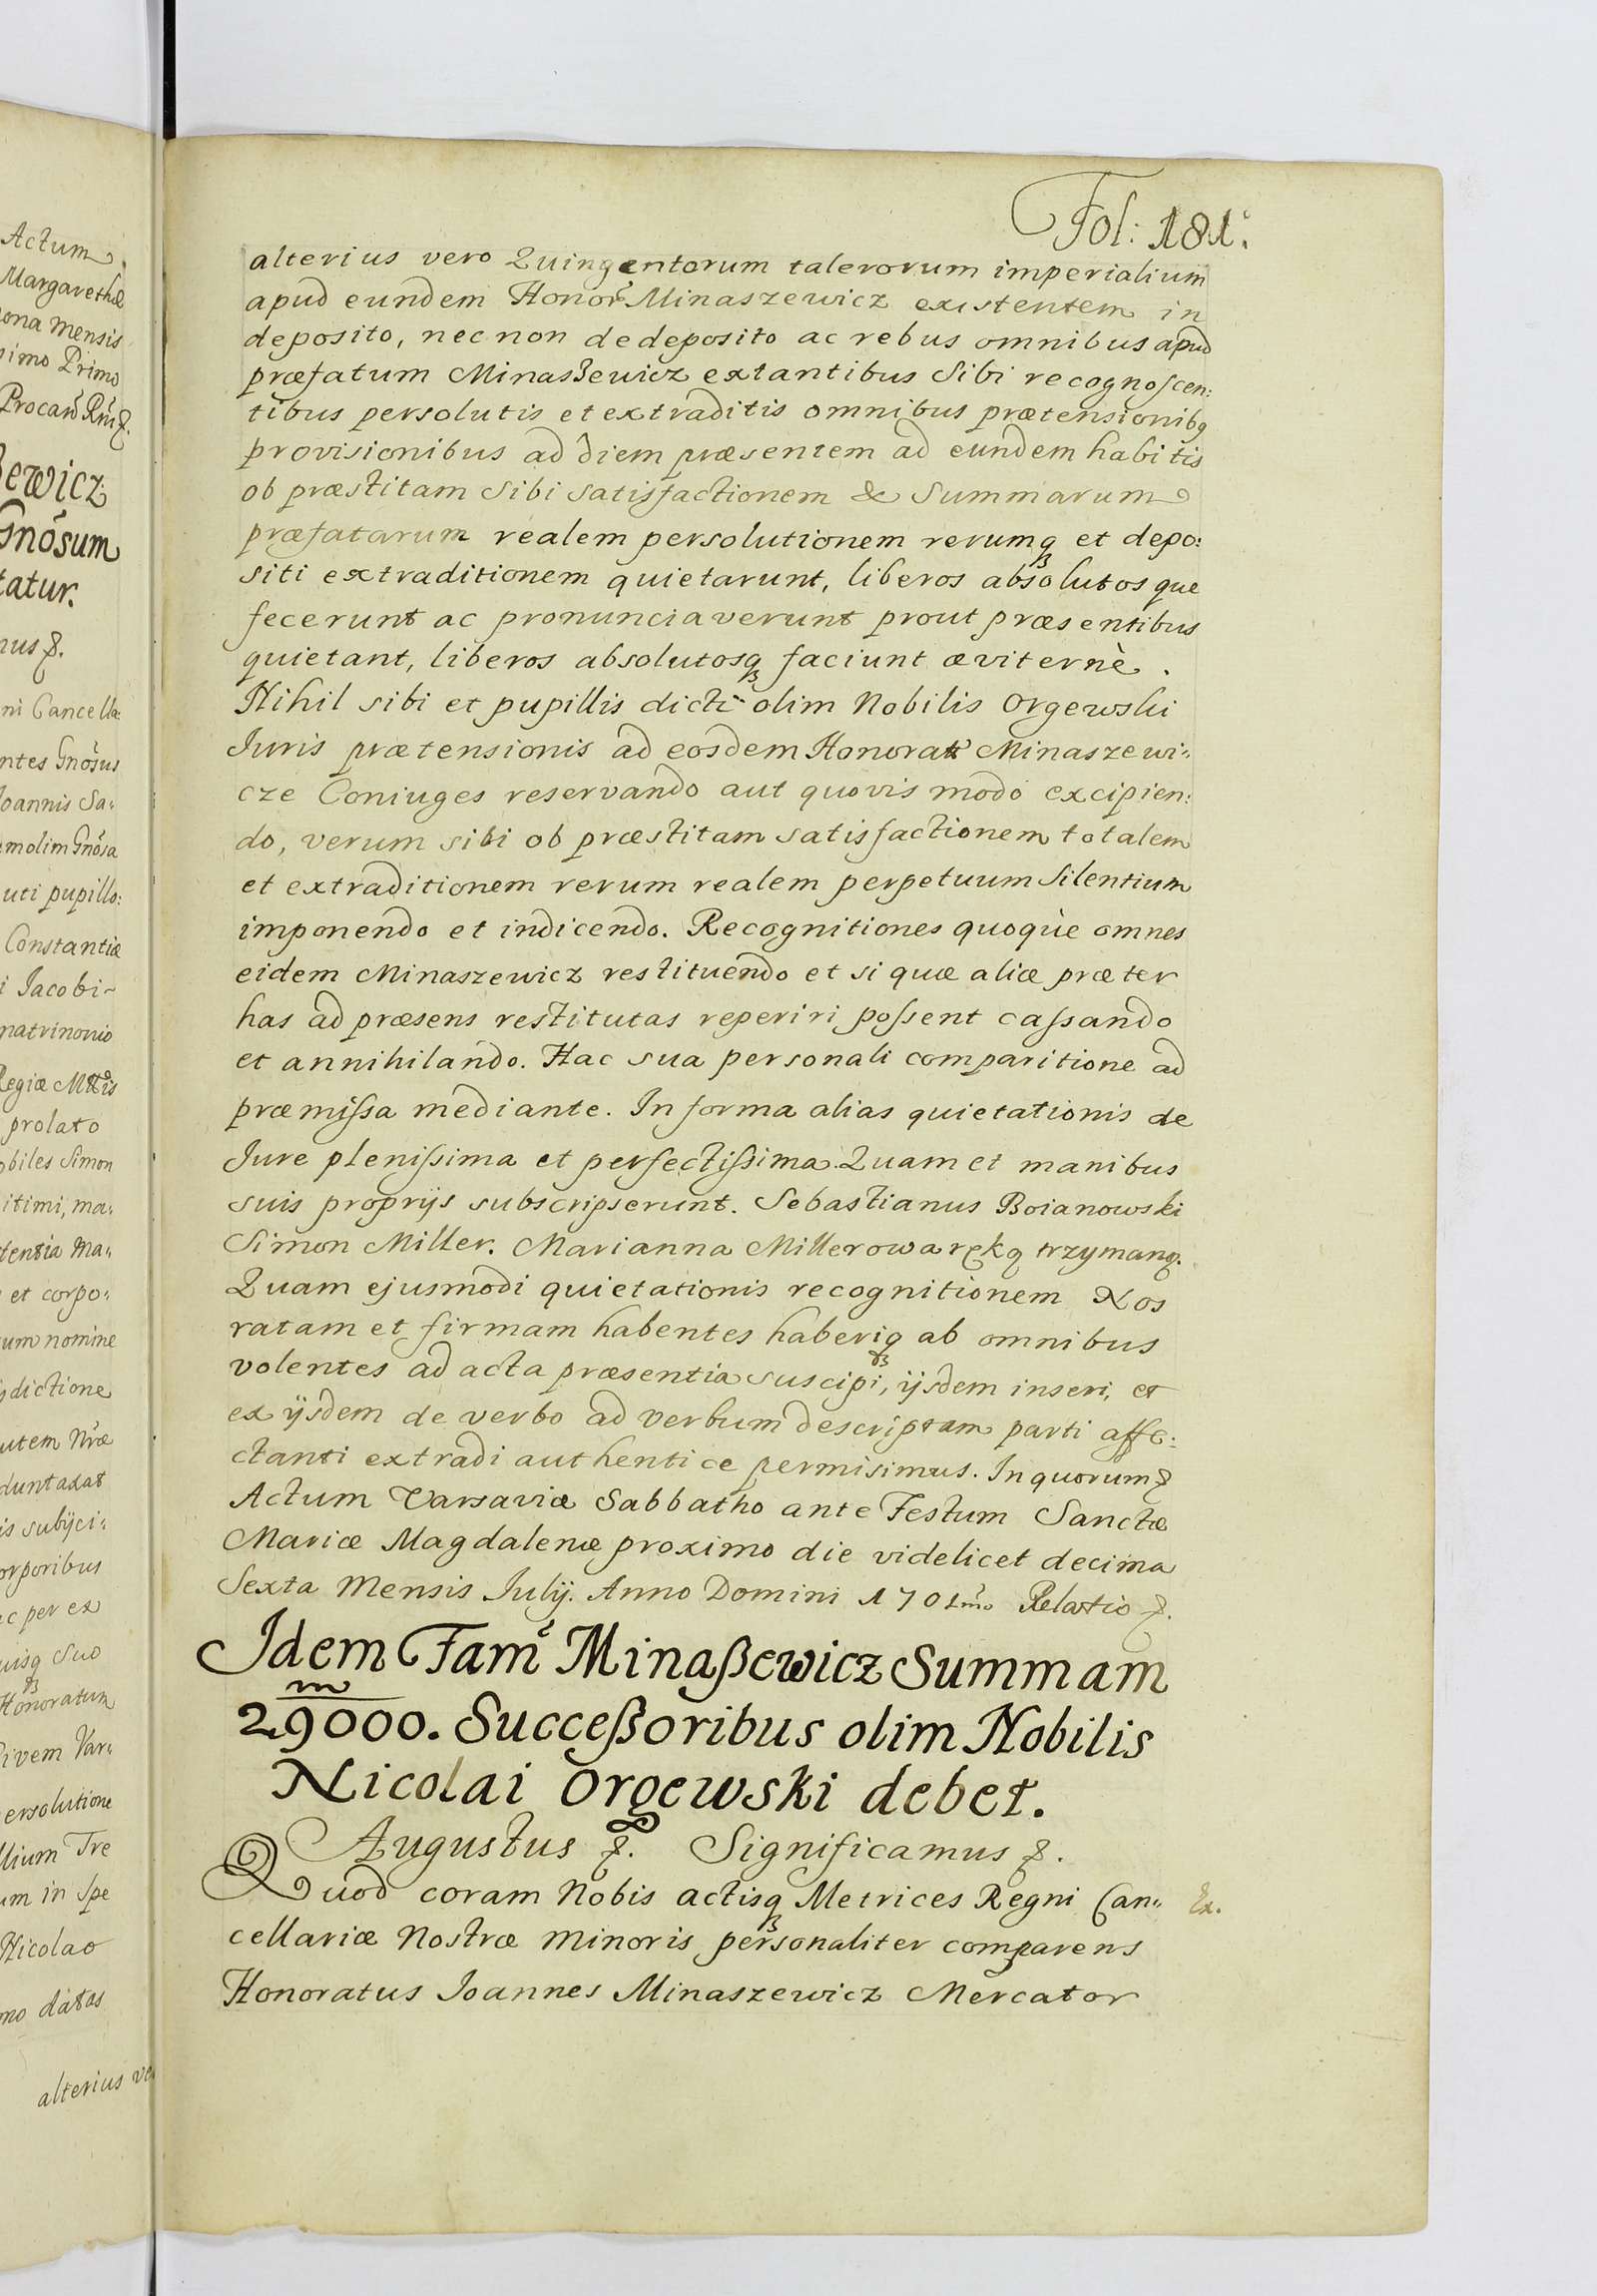 Actum
Margarethæ
ona mensis
simo Primo
ewicz
Gnõsum
tatur.
ni Cancella:
ntes Gnõsus
Ioannis Sa:
em olim Gnõsa
uti pupillo:
Constantiæ
i Iacobi
matrimonio
Regiæ Mttis
prolato
obiles Simon
itimi, ma:
tentia Ma:
et corpo:
um nomine
dictione
utem Nræ
duntaxat
is subijci:
orporibus
c per ex
uisq suo
Honoratum
ivem Var:
ersolutione
llium Tre
um in Spe
Nicolao
mo datas
alterius ve
Fol: 181.
alterius vero Quingentorum talerorum imperialium
apud eundem Honor Minaszewicz existentem in
deposito, nec non de deposito ac rebus omnibus apud
præfatum Minasßewicz extantibus Sibi recognoscen:
tibus persolutis et extraditis omnibus prætensionibq
provisionibus ad diem præsentem ad eundem habitis
ob præstitam Sibi satisfactionem & Summarum
præfatarum realem persolutionem rerumq et depo:
siti extraditionem quietarunt, liberos absolutos que
fecerunt ac pronunciaverunt prout præsentibus
quietant, liberos absolutosq faciunt æviternè.
Nihil sibi et pupillis dicti olim Nobilis Orgewski
Iuris prætensionis ad eosdem Honorat Minaszewi:
cze Coniuges reservando aut quovis modo excipien:
do, verum sibi ob præstitam satisfactionem totalem
et extraditionem rerum realem perpetuum Silentium
imponendo et indicendo. Recognitiones quoquè omnes
eidem Minaszewicz restituendo et si quæ aliæ præter
has ad præsens restitutas reperiri possent cassando
et annihilando. Hac sua personali comparitione ad
præmissa mediante. In forma alias quietationis de
Iure plenissima et perfectissima. Quam et manibus
suis proprijs subscripserunt. Sebastianus Boianowski
Simon Miller. Marianna Millerowa ręką trzymaną.
Quam ejusmodi quietationis recognitionem Nos
ratam et firmam habentes haberiq ab omnibus
volentes ad acta præsentia suscipi, ijsdem inseri, et
ex ijsdem de verbo ad verbum descriptam parti affe:
ctanti extradi authentice permisimus. In quorum
Actum Varsaviæ Sabbatho ante Festum Sanctæ
Mariæ Magdalenæ proximo die videlicet decima
Sexta Mensis Iulij. Anno Domini 1701mo Relatio
Idem Fam Minaßewicz Summam
m
29000. Succeßoribus olim Nobilis
Nicolai Orgewski debet.
Augustus Significamus
Quod coram Nobis actisq Metrices Regni Can:
cellariæ Nostræ Minoris personaliter comparens
Honoratus Ioannes Minaszewicz Mercator
Ex.